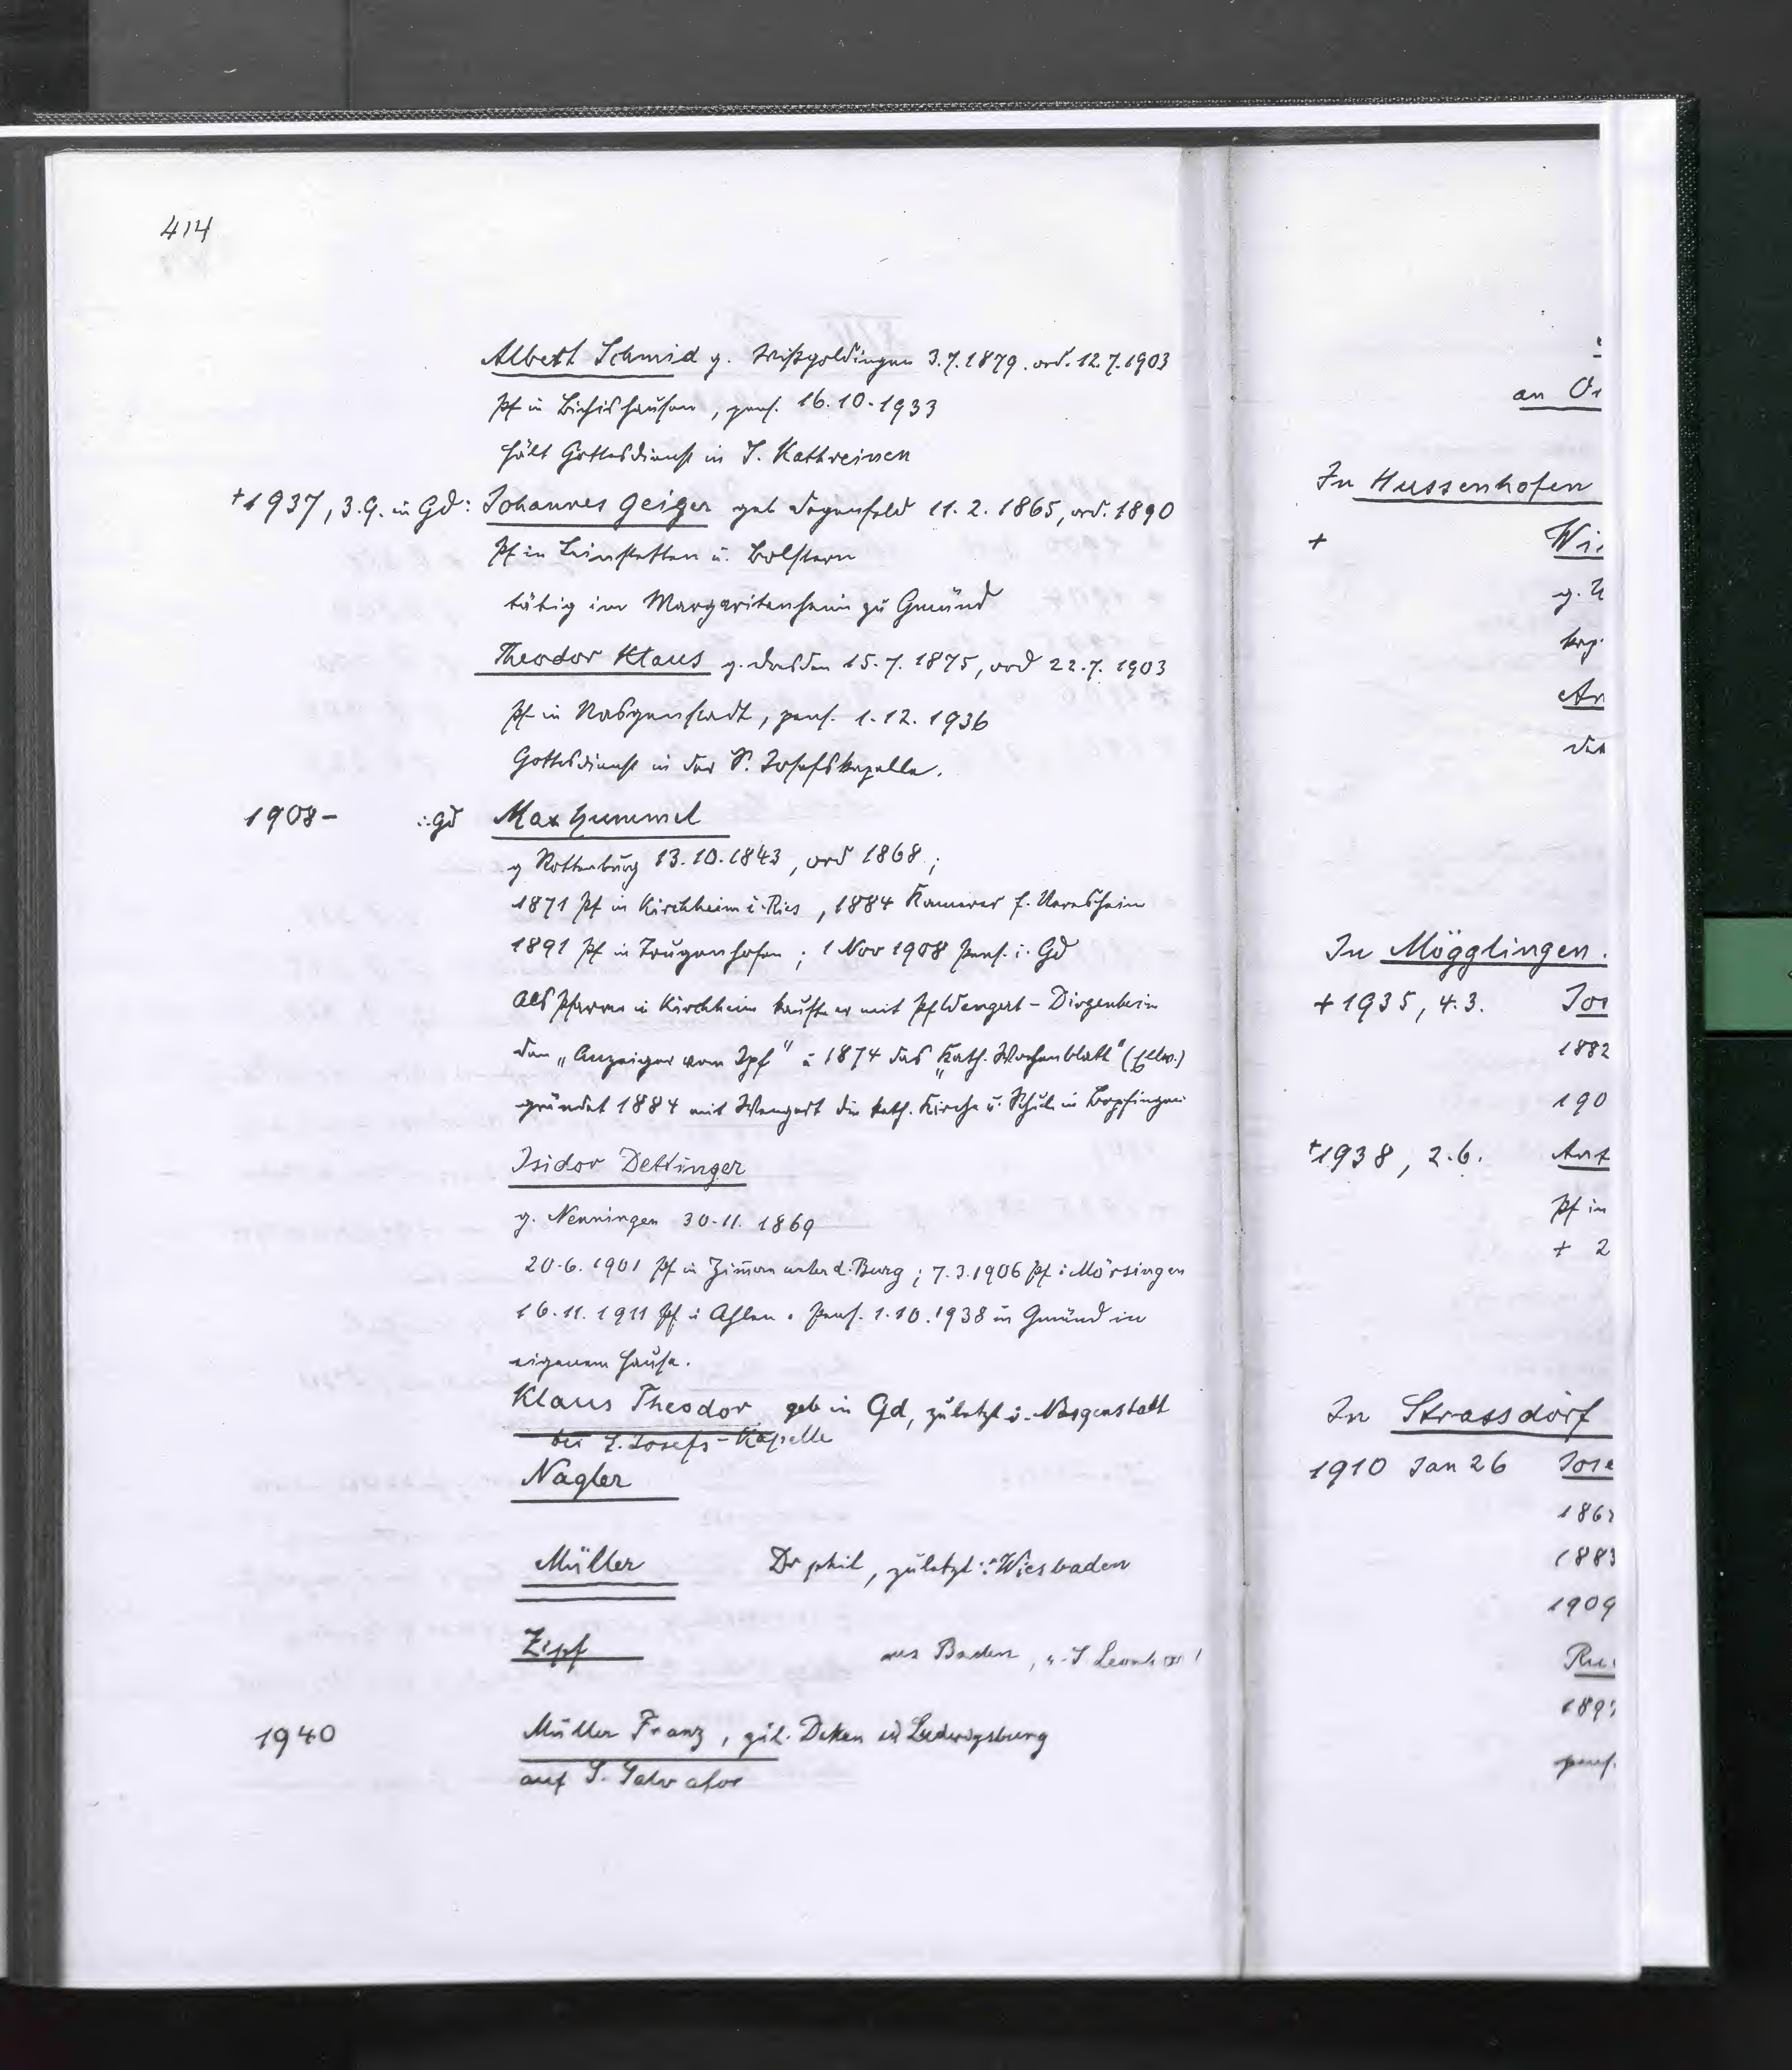 414
Albert Schmid g. Wißgoldingen 3.7.1879. ord. 12.7.1903
Pf in Bichishausen, pens. 16.10.1933
hält Gottesdienst in S. Kathreinen
+1937, 3.9. in Gd: Johannes Geiger geb Degenfeld 11.2.1865, ord. 1890
Pf in Leinstetten u. Bolstern
tätig im Margaritenheim zu Gmünd
Theodor Klaus g. 15.7.1875, ord 22.7.1903
Pf in Nasgenstadt, pens. 1.12.1936
Gottesdienst in der S. Josefskapelle.
1908- i. Gd Max Hummel
g Rottenburg 13.10.1843, ord 1868;
1871 Pf in Kirchheim i. Ries, 1884 Kamerer f. Neresheim
1891 Pf in Trugenhofen; 1 Nov 1908 Pens. i. Gd
Als Pfarrer in Kirchheim kaufte er mit Pf Wengert - Dirgenheim
den „Anzeiger vom Ipf" u 1874 das „Kath. Wochenblatt" (Ellw.)
gründet 1884 mit Wengert die kath. Kirche u. Schule in Bopfingen
Isidor Dettinger
g. Nenningen 30.11.1869
20.6.1901 Pf in Zimmern unter d. Burg; 7.3.1906 Pf i Mörsingen
16.11.1911 Pf i Ahlen. Pens. 1.10.1938 in Gmünd in
eigenem Hause.
Klaus Theodor geb in Gd, zuletzt i. Nasgenstatt
bei S. Josefs-Kapelle
Nagler
Müller Dr phil, zuletzt i. Wiesbaden
Zipf aus Baden, S Leonhard
1940 Müller Franz, Dekan in Ludwigsburg
auf S. Salvator
an Or
In Hussenhofen
+ Wi
g. U
kap
An
In Mögglingen.
+1935, 4.3. Jos
1882
190
+1938, 2.6. Ant
Pf in
+ 2
In Strassdorf
1910 Jan 26 Jose
186
1883
1909
Ru
189
pens.